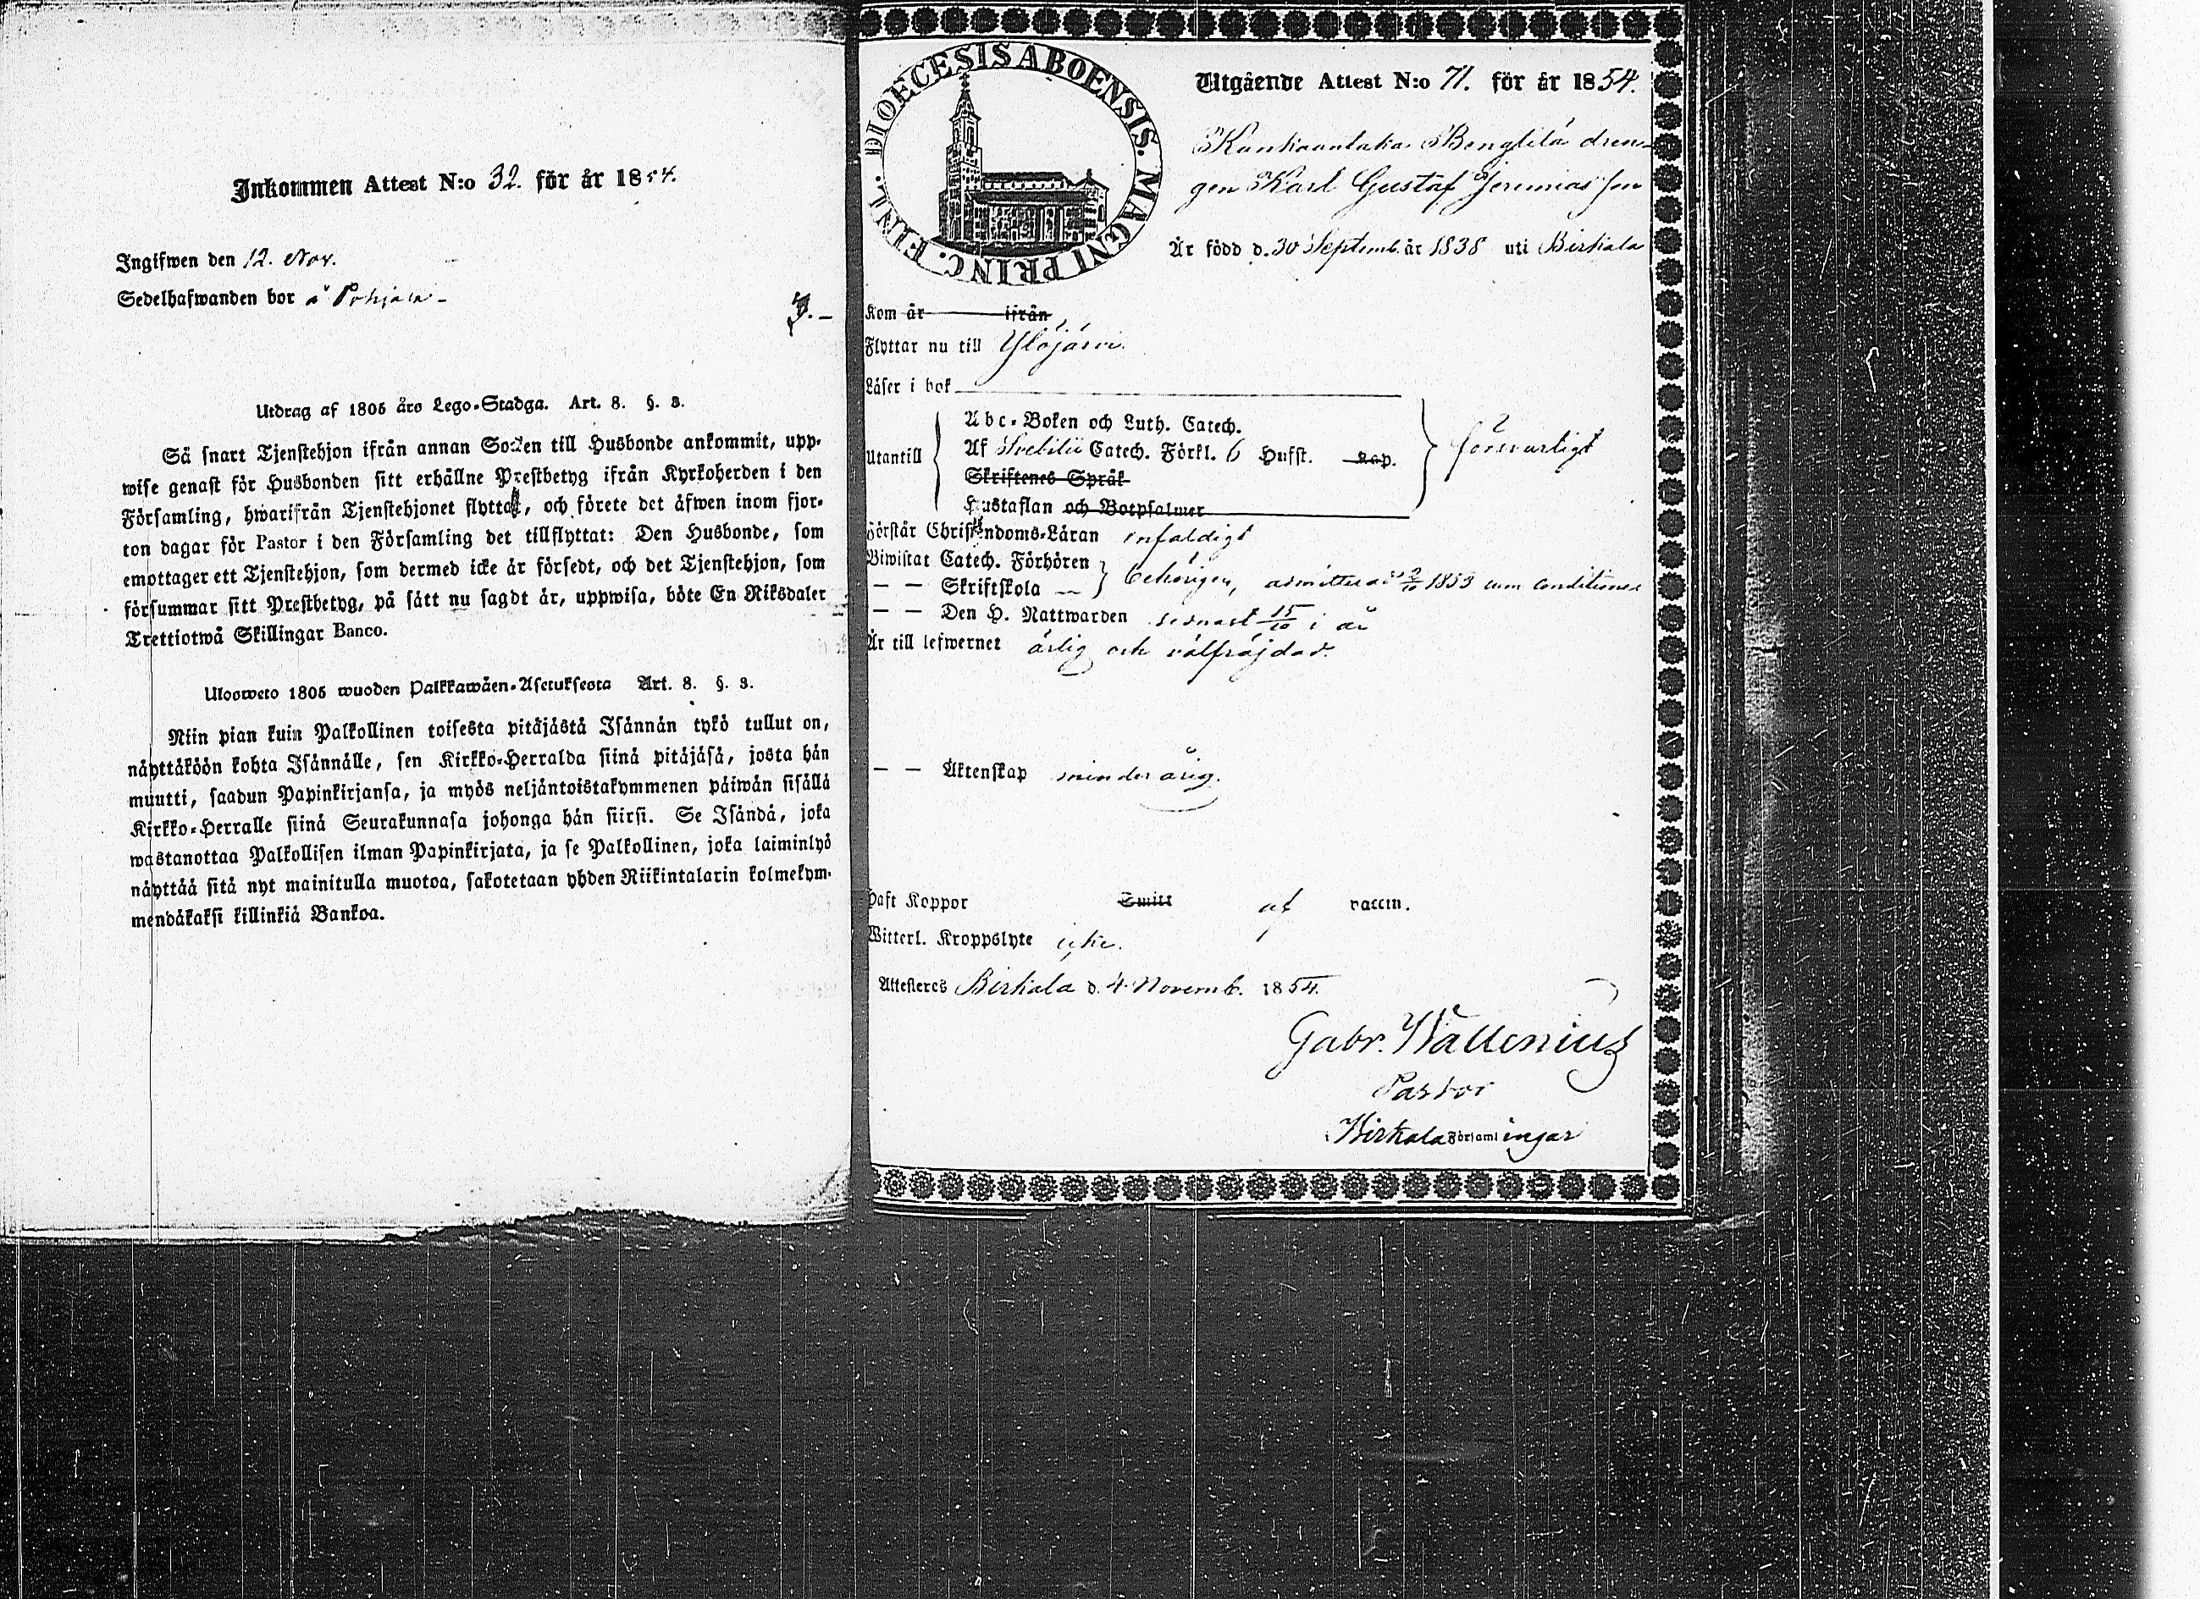 Inkommen Attest N:o 32. för år 1854.
Ingifwen den 12. Nov.
Sedelhafwanden bor å Pohjala
Utdrag af 1805 års Lego-Stadga. Art. 8. §. 3.
Så snart Tjenstehjon ifrån annan Socken till Husbonde ankommit, upp-
wise genast för Husbonden sitt erhållne Prestbetyg ifrån Kyrkoherden i den
Församling, hwarifrån Tjenstehjonet flyttat, och förete det äfwen inom fjor-
ton dagar för Pastor i den Församling det tillflyttat: Den Husbonde, som
emottager ett Tjenstehjon, som dermed icke är försedt, och det Tjenstehjon, som
försummar sitt Prestbetyg, på sätt nu sagdt är, uppwisa, böte En Riksdaler
Trettiotwå Skillingar Banco.
Ulosweto 1805 wuoden Palkkawäen-Asetuksesta Art. 8. §. 3.
Niin pian kuin Palkollinen toisesta pitäjästä Isännän tykö tullut on,
näyttäköön kohta Isännälle, sen Kirkko-Herralda siinä pitäjäsä, josta hän
muutti, saadun Papinkirjansa, ja myös neljäntoistakymmenen päiwän sisällä
Kirkko-Herralle siinä Seurakunnasa johonga hän siirsi. Se Isändä, joka
wastanottaa Palkollisen ilman Papinkirjata, ja se Palkollinen, joka laiminlyö
näyttää sitä nyt mainitulla muotoa, sakotetaan yhden Riikintalarin kolmekym-
mendäkaksi killinkiä Bankoa.
DIOECESIS ABOENSIS. MAGNI PRINC. FINL.
Utgående Attest N:o 71. för år 1854.
Kankaantaka Bengtilä dren-
gen Karl Gustaf Jeremias son
Är född d. 30 Septemb. år 1838 uti Birkala
Kom år ifrån
Flyttar nu till Ylöjärvi.
Läser i bok
Utantill
Abc-Boken och Luth. Catech.
Af Svebilii Catech. Förkl. 6 Hufst. Kap.
Skriftenes Språk
Hustaflan och Botpsalmer
försvarligt
Förstår Christendoms-Läran enfaldigt
Biwistat Catech. Förhören
— — Skriftskola — behörigen, admitterad 2/10 1853 cum conditione
— — Den H. Nattwarden sednast 15/10 i år
Är till lefwernet ärlig och välfräjdad.
— — Äktenskap minderårig.
Haft Koppor Smitt af vaccin.
Witterl. Kroppslyte icke.
Attesteres Birkala d. 4 Novemb. 1854.
Gabr. Wallenius
Pastor
Birkala Församlingar